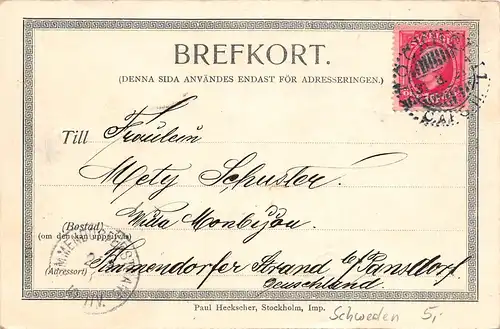 BREFKORT.
(DENNA SIDA ANVÄNDES ENDAST FÖR ADRESSERINGEN.)
Till Fräulein
Mety Schuster.
Villa Monbijou
(Bostad)
(om den kan uppgifvas)
(Adressort) Timmendorfer Strand b/Pansdorf.
Deutschland.
Paul Heckscher, Stockholm, Imp.
Schweden 5,-